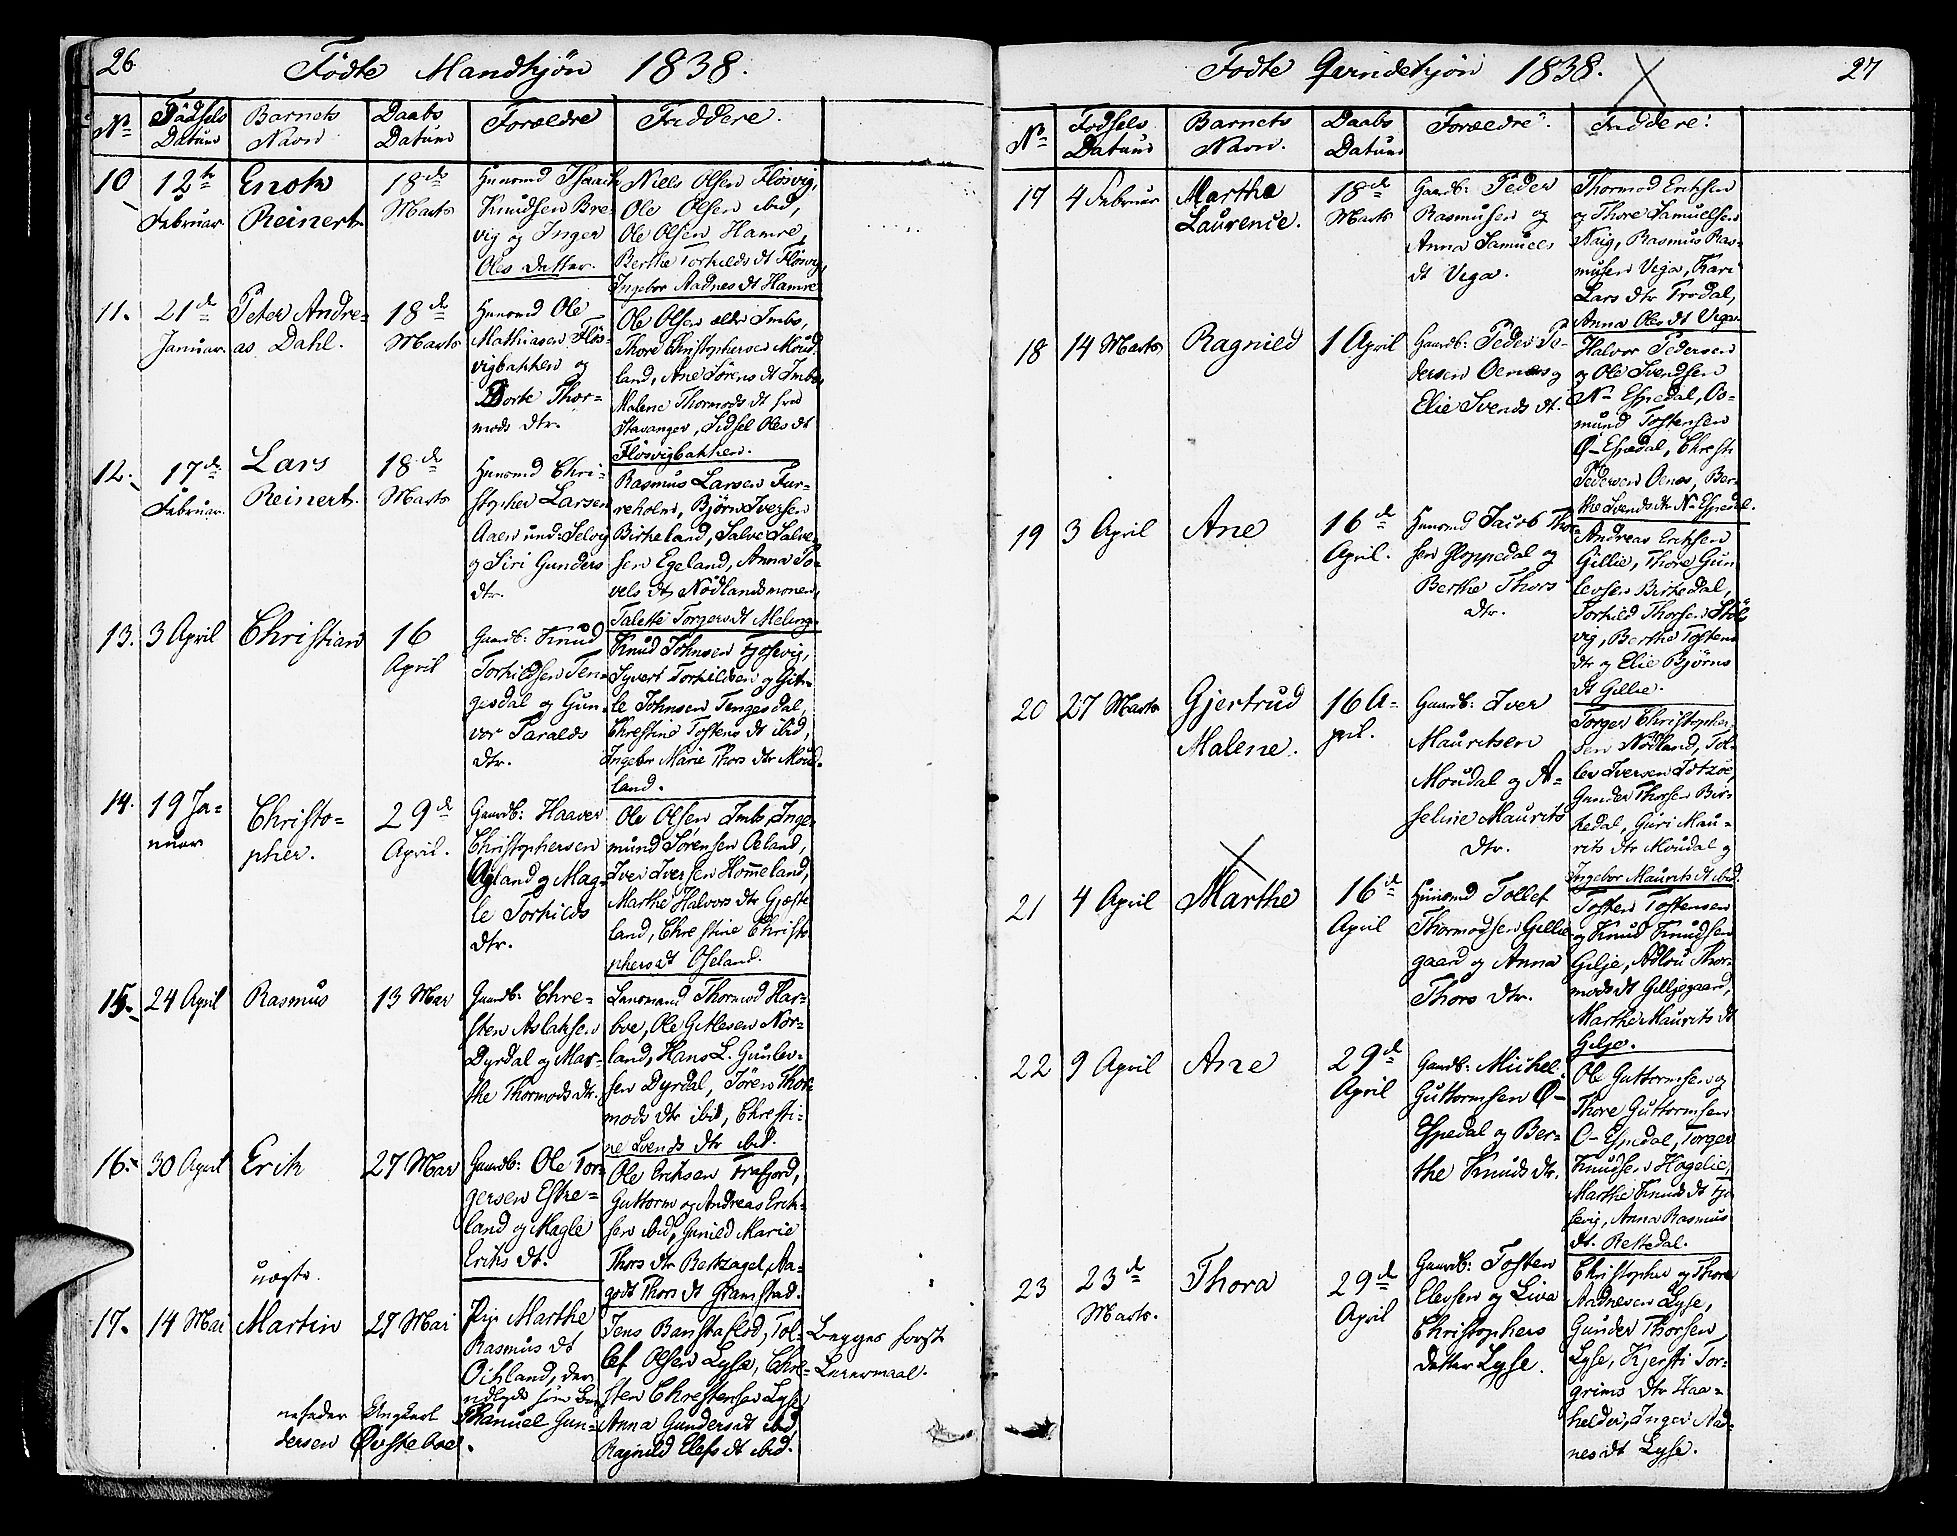 26
Födte Mandkjön 1838.
No
Födsels Datum
Barnets Navn
Daabs Datum
Forældre
Faddere.
10
12te Februar
Enok Reinert
18de Marts
Huusmd Isaach
Knudsen Bre-
vig og Inger
Oles datter.
Niels Olsen Flösvig,
Ole Olsen ibid,
Ole Olsen Hamre,
Berthe Torkilds dt Flösvig,
Ingebor Aadnes dt Hamre
11.
21de Januar.
Peter Andre-
as Dahl.
18de Marts
Huusmd Ole
Mathiasen Flös-
vigbakken og
Dorte Thor-
mods dtr.
Ole Olsen ældr Imbs,
Thore Christophersen Moüd-
land, Ane Sörens dt Imbs,
Malene Thormods dt fra
Stavanger, Sidsel Oles dt
Flösvigbakken.
12.
17de Februar.
Lars
Reinert.
18de Marts
Huusmd Chri-
stopher Larsen
Aaen und: Selvig
og Siri Gunders
dtr.
Rasmus Larsen Fur-
reholm, Björn Iversen
Birkeland, Salve Salve-
sen Egeland, Anna To-
vels dt Nödlandsmonen,
Talette Torgers dt Meling.
13.
3 April
Christian
16
April
Gaardb: Knud
Torkildsen Ten-
gesdal og Gun-
vor Taralds
dtr.
Knud Johnsen Fjosvig,
Syvert Torkildsen og Git-
le Johnsen Tengesdal,
Chrestine Tostens dt ibid,
Ingebor Marie Thors dtr Moüd-
land.
14.
19 Ja-
nuar
Christo-
pher.
29de
April.
Gaardb: Haaver
Christophersen
Ogland og Mag-
le Torkilds
dtr.
Ole Olsen Imbs, Inge-
mund Sörensen Oeland,
Iver Iversen Homeland,
Marthe Halvors dtr Gjeste-
land, Chrestine Christo-
phers dt Oseland.
15.
24 April
Rasmus
13 Mai
Gaardb: Chre-
sten Aslaksen
Dyrdal og Mar-
the Thormods dtr.
Lensmand Thormod Har-
boe, Ole Gitlesen Nor-
land, Hans L. Gunlev-
sen Dyrdal, Sören Thor-
mods dtr ibid, Chresti-
ne Svends dtr ibid.
16.
30 April
Erik
27 Mai
Gaardb: Ole Tor-
gersen Eske-
land og Magle
Eriks dt.
Ole Eriksen Frafjord,
Guttorm og Andreas Erik-
sen ibid, Gunild Marie
Thors dtr Bertzagel, Aa-
godt Thors dt Gramstad.
17.
14 Mai
uægte.
Martin
27 Mai
Pige Marthe
Rasmus dt
Oikland, der
udlagde som Bar-
nefader Ungkarl Thanuel Gun-
dersen Övsteboe.
Jens Banstaflod, Tol-
lef Olsen Lyse, Chre-
sten Chrestensen Lyse
Anna Gunders dt ibid,
Ragnild Elefs dt ibid.
Begges först
Leiermaal.
27
Födte Qvindekjön 1838.
No
Födsels Datum
Barnets Navn.
Daabs Datum
Forældre.
Faddere.
17
4 Februar
Marthe
Laurence.
18de
Marts
Gaardb: Peder
Rasmusen og
Anna Samuels
dt Vega.
Thormod Eriksen
og Thore Samuelsen
Haig, Rasmus Ras-
musen Vega, Kari
Lars dtr Frodal,
Anna Oles dt Vega.
18
14 Marts
Ragnild
1 April
Gaardb: Peder Pe-
dersen Oenæs og
Elie Svends dt.
Halvor Pedersen
og Ole Svendsen
N- Espedal, Os-
mund Tostensen
Ö-Espedal, Chresti
Pedersen Oenæs, Ber-
the Svends dtr N- Espedal.
19
3 April
Ane
16de
April.
Huusmd Jacob Thor-
sen Gloppedal og
Berthe Thors
dtr.
Andreas Eriksen
Gillie, Thore Gun-
levsen Birkedal,
Torkild Thorsen Stöl-
vig, Berthe Tostens
dtr og Elie Björns
dt Gillie.
20
27 Marts
Gjertrud
Malene.
16 A-
pril.
Gaardb: Iver
Mauritsen
Moudal og A-
seline Maurits
dtr.
Torger Christopher-
sen Nödland, Tol-
lev Iversen Jötzöe,
Gunder Thorsen Bir-
kedal, Guri Mau-
rits dtr Moudal og
Ingebor Maurits dt ibid.
21
4 April
Marthe
16de
April
Huusmd Tollef
Thormodsen Gillie-
gaard og Anna
Thors dtr.
Tosten Tostensen
og Knud Knudsen
Gilje, Adlou Thor-
mods dt Giljegaard,
Marthe Maurits dt
Gilje.
22
9 April
Ane
29de
April
Gaardb: Michel
Guttormsen Ö-
Espedal og Ber-
the Knuds dtr.
Ole Guttormsen og
Thore Guttormsen
Ö-Espedal, Torger
Knudsen Hogelie,
Marthe Knuds dt Fjo-
sevig, Anna Rasmus
dt. Rettedal.
23
23de
Marts.
Thora
29de
April
Gaardb: Tosten
Elevsen og Liva
Christophers
datter Lyse.
Christopher og Thore
Aadnesen Lyse,
Gunder Thorsen
Lyse, Kjersti Tor-
grims dtr Haa-
helder, Inger Aad-
nes dt Lyse.